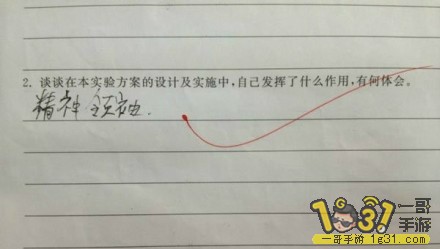 2. 谈谈在本实验方案的设计及实施中,自己发挥了什么作用,有何体会。
精神领袖.
1G31
一哥
手游
一哥手游 1g31.com